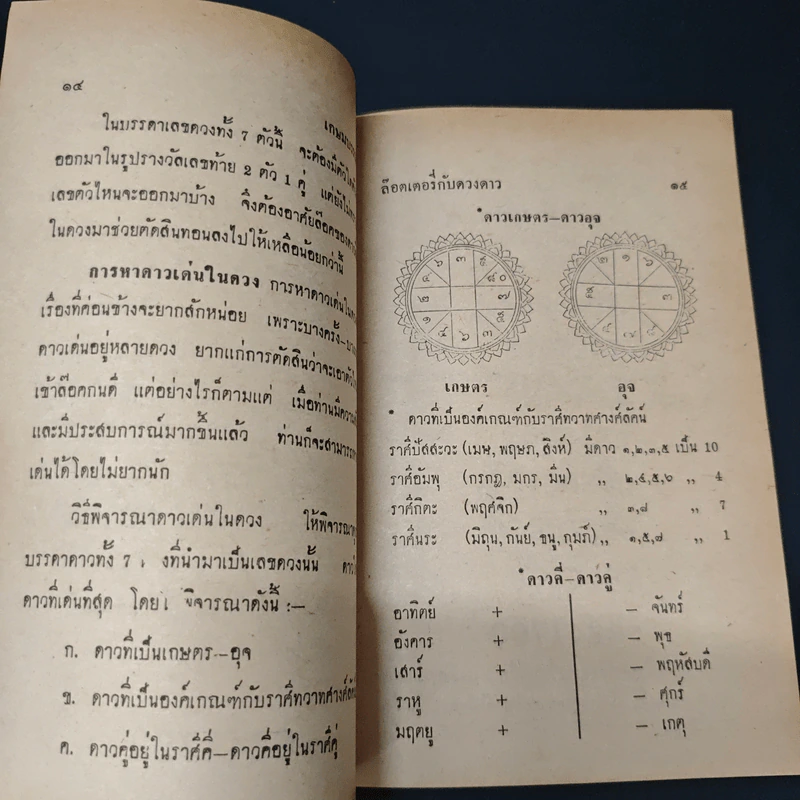 ๑๔
ในบรรดาเลขดวงทั้ง 7 ตัวนี้ จะต้องมีตัว
ออกมาในรูปรางวัลเลขท้าย 2 ตัว 1 คู่ แต่ยังไม่
เลขตัวไหนจะออกมาบ้าง จึงต้องอาศัยล๊อค
ในดวงมาช่วยตัดสินทอนลงไปให้เหลือน้อยกว่านี้
การหาดาวเด่นในดวง การหาดาวเด่น
เรื่องที่ค่อนข้างจะยากสักหน่อย เพราะบางครั้ง
ดาวเด่นอยู่หลายดวง ยากแก่การตัดสินว่าจะเอา
เข้าล๊อคกนดี แต่อย่างไรก็ตามแต่ เมื่อท่านมีความ
และมีประสบการณ์มากขึ้นแล้ว ท่านก็จะสามารถ
เด่นได้โดยไม่ยากนัก
วิธีพิจารณาดาวเด่นในดวง ให้พิจารณา
บรรดาดาวทั้ง 7 งที่นำมาเป็นเลขดวงนั้น
ดาวที่เด่นที่สุด โดย พิจารณาดังนี้ :—
ก. ดาวที่เป็นเกษตร—อุจ
ข. ดาวที่เป็นองค์เกณฑ์กับราศีทวาทศางค์ลัคน์
ค. ดาวคู่อยู่ในราศีคี่—ดาวคี่อยู่ในราศีคู่
ล๊อตเตอรี่กับดวงดาว ๑๕
ดาวเกษตร—ดาวอุจ
เกษตร อุจ
ดาวที่เป็นองค์เกณฑ์กับราศีทวาทศางค์ลัคน์
ราศีปัสสะวะ (เมษ, พฤษภ, สิงห์) มีดาว ๑,๒,๓,๕ เป็น 10
ราศีอัมพุ (กรกฎ, มกร, มีน) ,, ๒,๔,๕,๖ ,, 4
ราศีกีตะ (พฤศจิก) ,, ๓,๘ ,, 7
ราศีนระ (มิถุน, กันย์, ธนู, กุมภ์) ,, ๑,๕,๗ ,, 1
ดาวคี่—ดาวคู่
อาทิตย์ + — จันทร์
อังคาร + — พุธ
เสาร์ + — พฤหัสบดี
ราหู + — ศุกร์
มฤตยู + — เกตุ